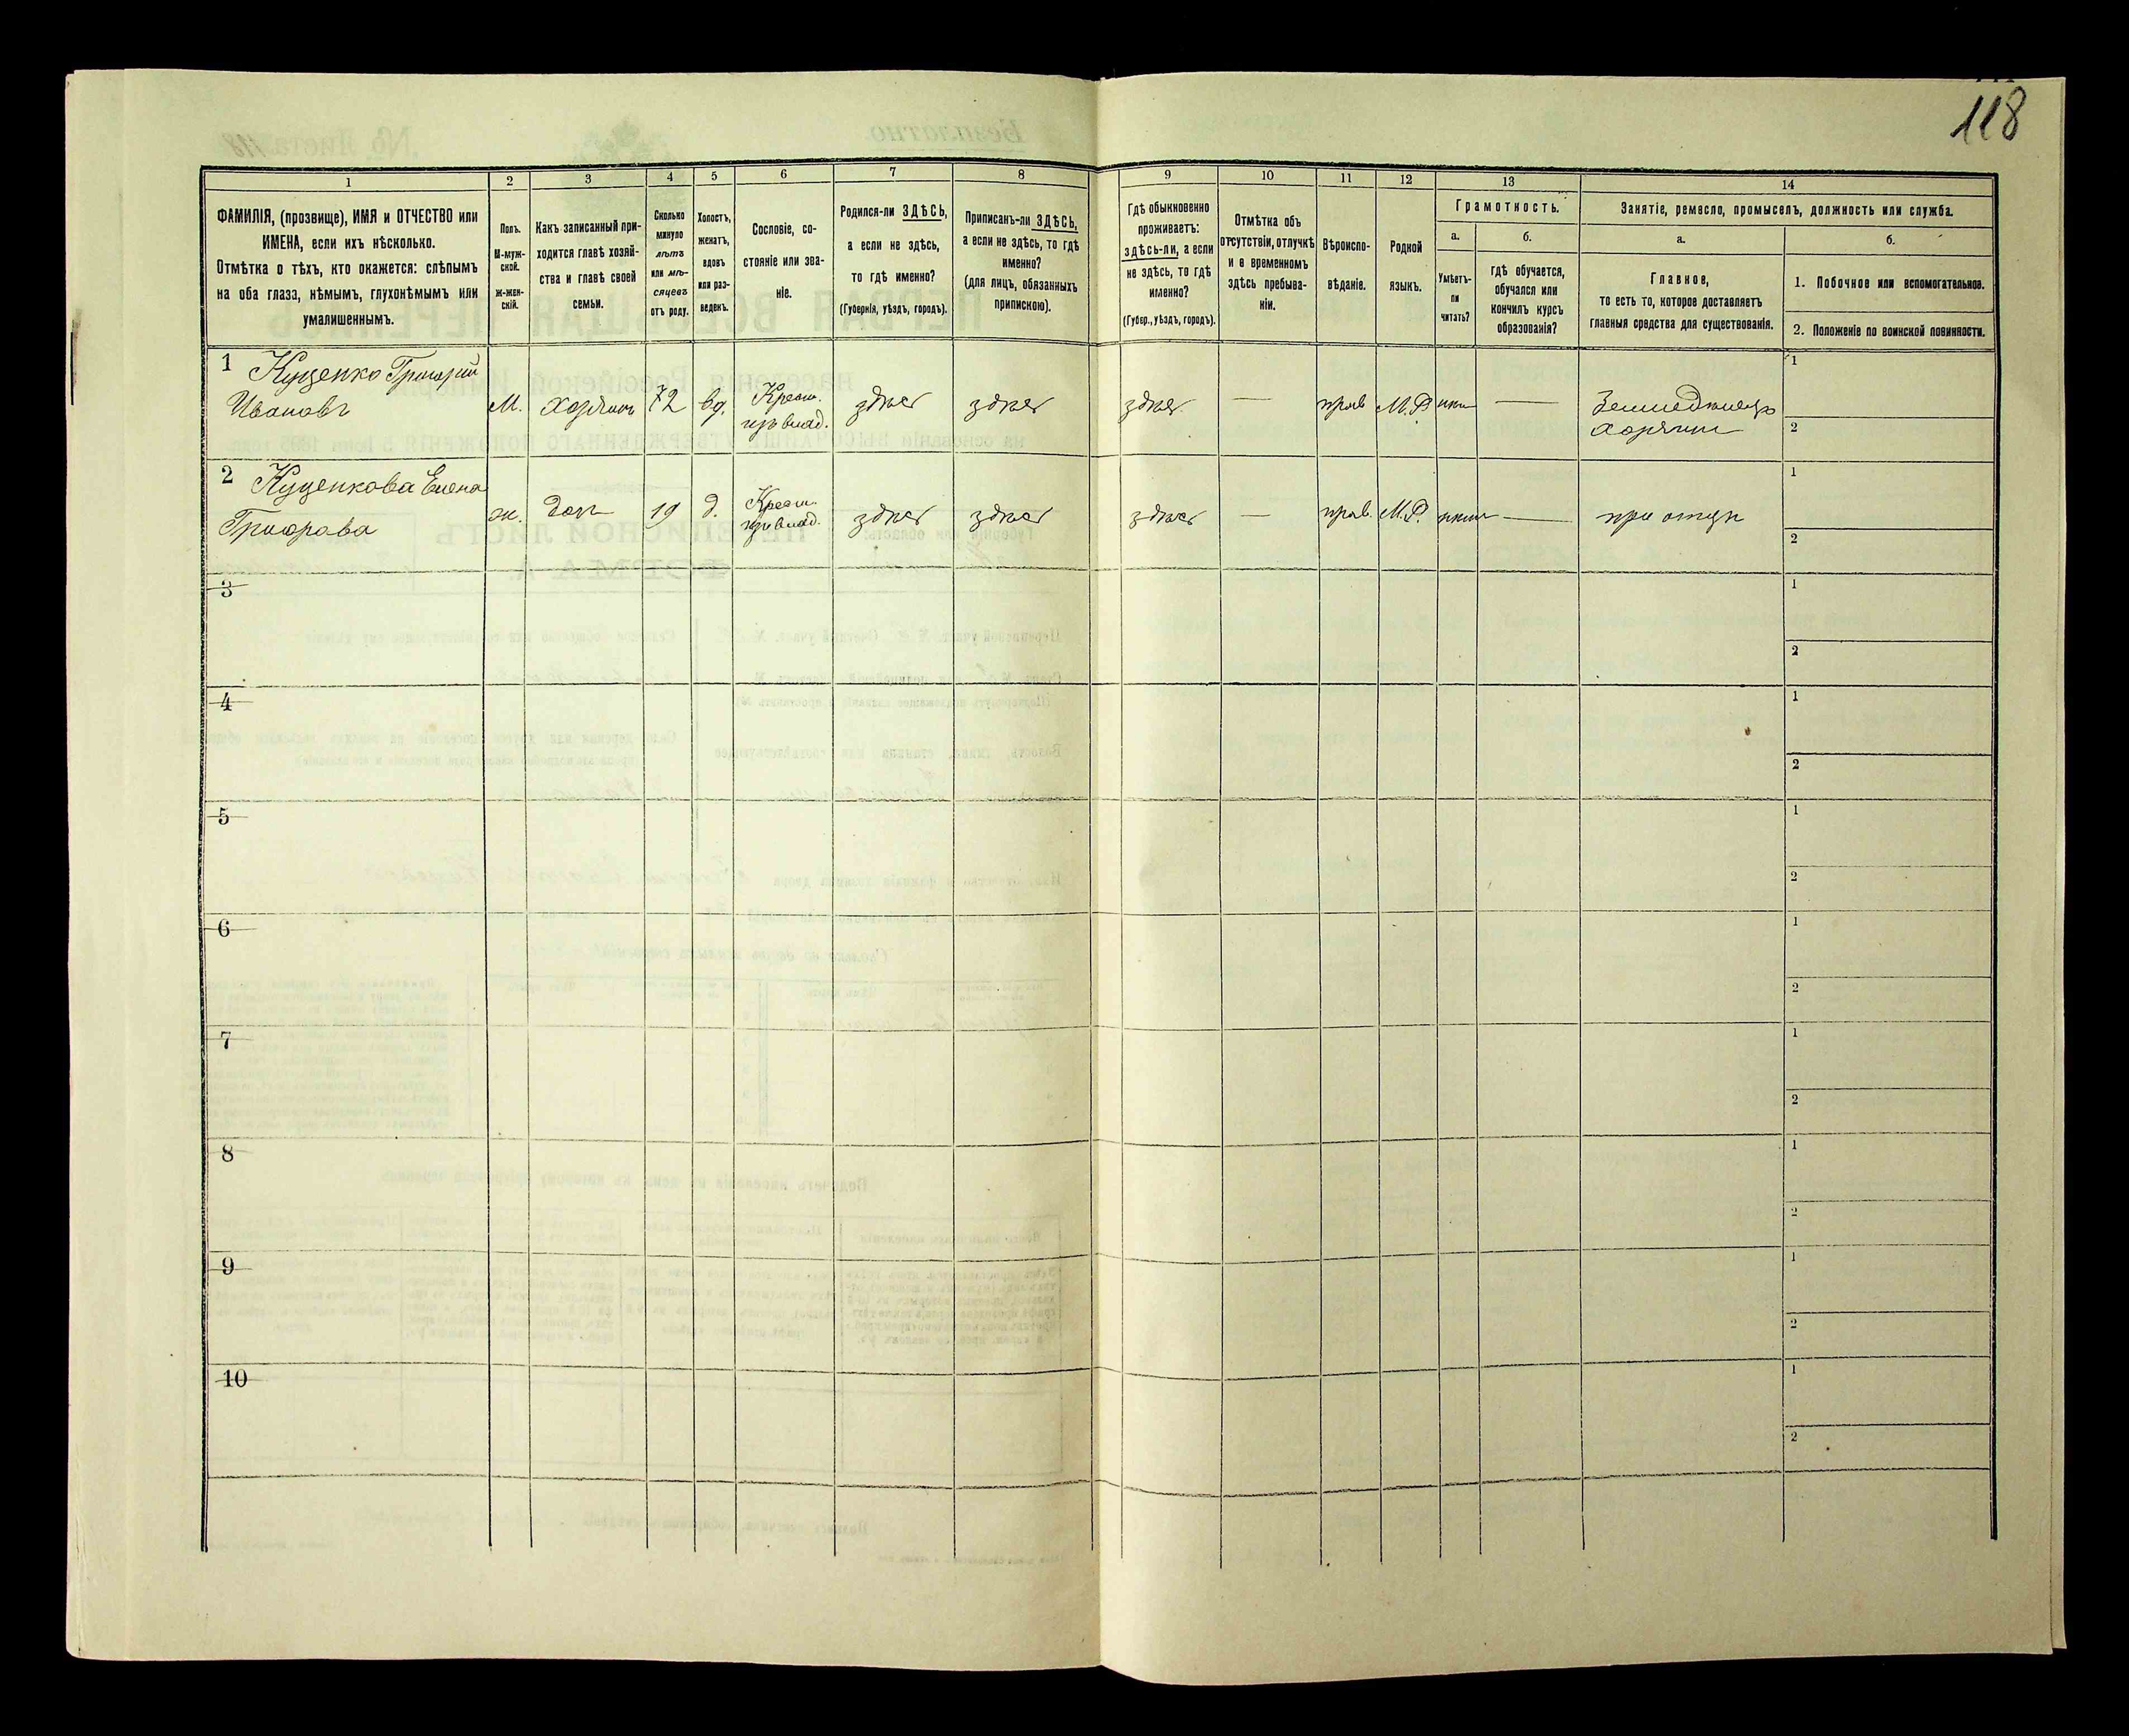 118
1
2
3
4
5
6
7
8
9
10
11
12
13
14
ФАМИЛІЯ, (прозвище), ИМЯ и ОТЧЕСТВО или
ИМЕНА, если ихъ нѣсколько.
Отмѣтка о тѣхъ, кто окажется: слѣпымъ
на оба глаза, нѣмымъ, глухонѣмымъ или
умалишеннымъ.
Полъ.
М-муж-
ской.
ж-жен-
скій.
Какъ записанный при-
ходится главѣ хозяй-
ства и главѣ своей
семьи.
Сколько
минуло
лѣтъ
или мѣ-
сяцевъ
отъ роду.
Холостъ,
женатъ,
вдовъ
или раз-
веденъ.
Сословіе, со-
стояніе или зва-
ніе.
Родился-ли ЗДѢСЬ,
а если не здѣсь,
то гдѣ именно?
(Губернія, уѣздъ, городъ).
Приписанъ-ли ЗДѢСЬ,
а если не здѣсь, то гдѣ
именно?
(для лицъ, обязанныхъ
припискою).
Гдѣ обыкновенно
проживаетъ:
здѣсь-ли, а если
не здѣсь, то гдѣ
именно?
(Губер., уѣздъ, городъ).
Отмѣтка объ
отсутствіи, отлучкѣ
и о временномъ
здѣсь пребыва-
ніи.
Вѣроиспо-
вѣданіе.
Родной
языкъ.
Грамотность.
а.
Умѣетъ-
ли
читать?
б.
гдѣ обучается,
обучался или
кончилъ курсъ
образованія?
Занятіе, ремесло, промыселъ, должность или служба.
а.
Главное,
то есть то, которое доставляетъ
главныя средства для существованія.
б.
1. Побочное или вспомогательное.
2. Положеніе по воинской повинности.
1 Куценко Григорій
Ивановъ
М.
хозяинъ
72
вд.
Крест.
изъ влад.
здѣсь
здѣсь
здѣсь
—
прав
М.Р.
нѣтъ
—
Земледѣлецъ
хозяинъ
1
2
2 Куценкова Елена
Григорова
ж.
дочь
19
д.
Крест.
изъ влад.
здѣсь
здѣсь
здѣсь
—
прав.
М.Р.
нѣтъ
—
при отцѣ
1
2
3
1
2
4
1
2
5
1
2
6
1
2
7
1
2
8
1
2
9
1
2
10
1
2